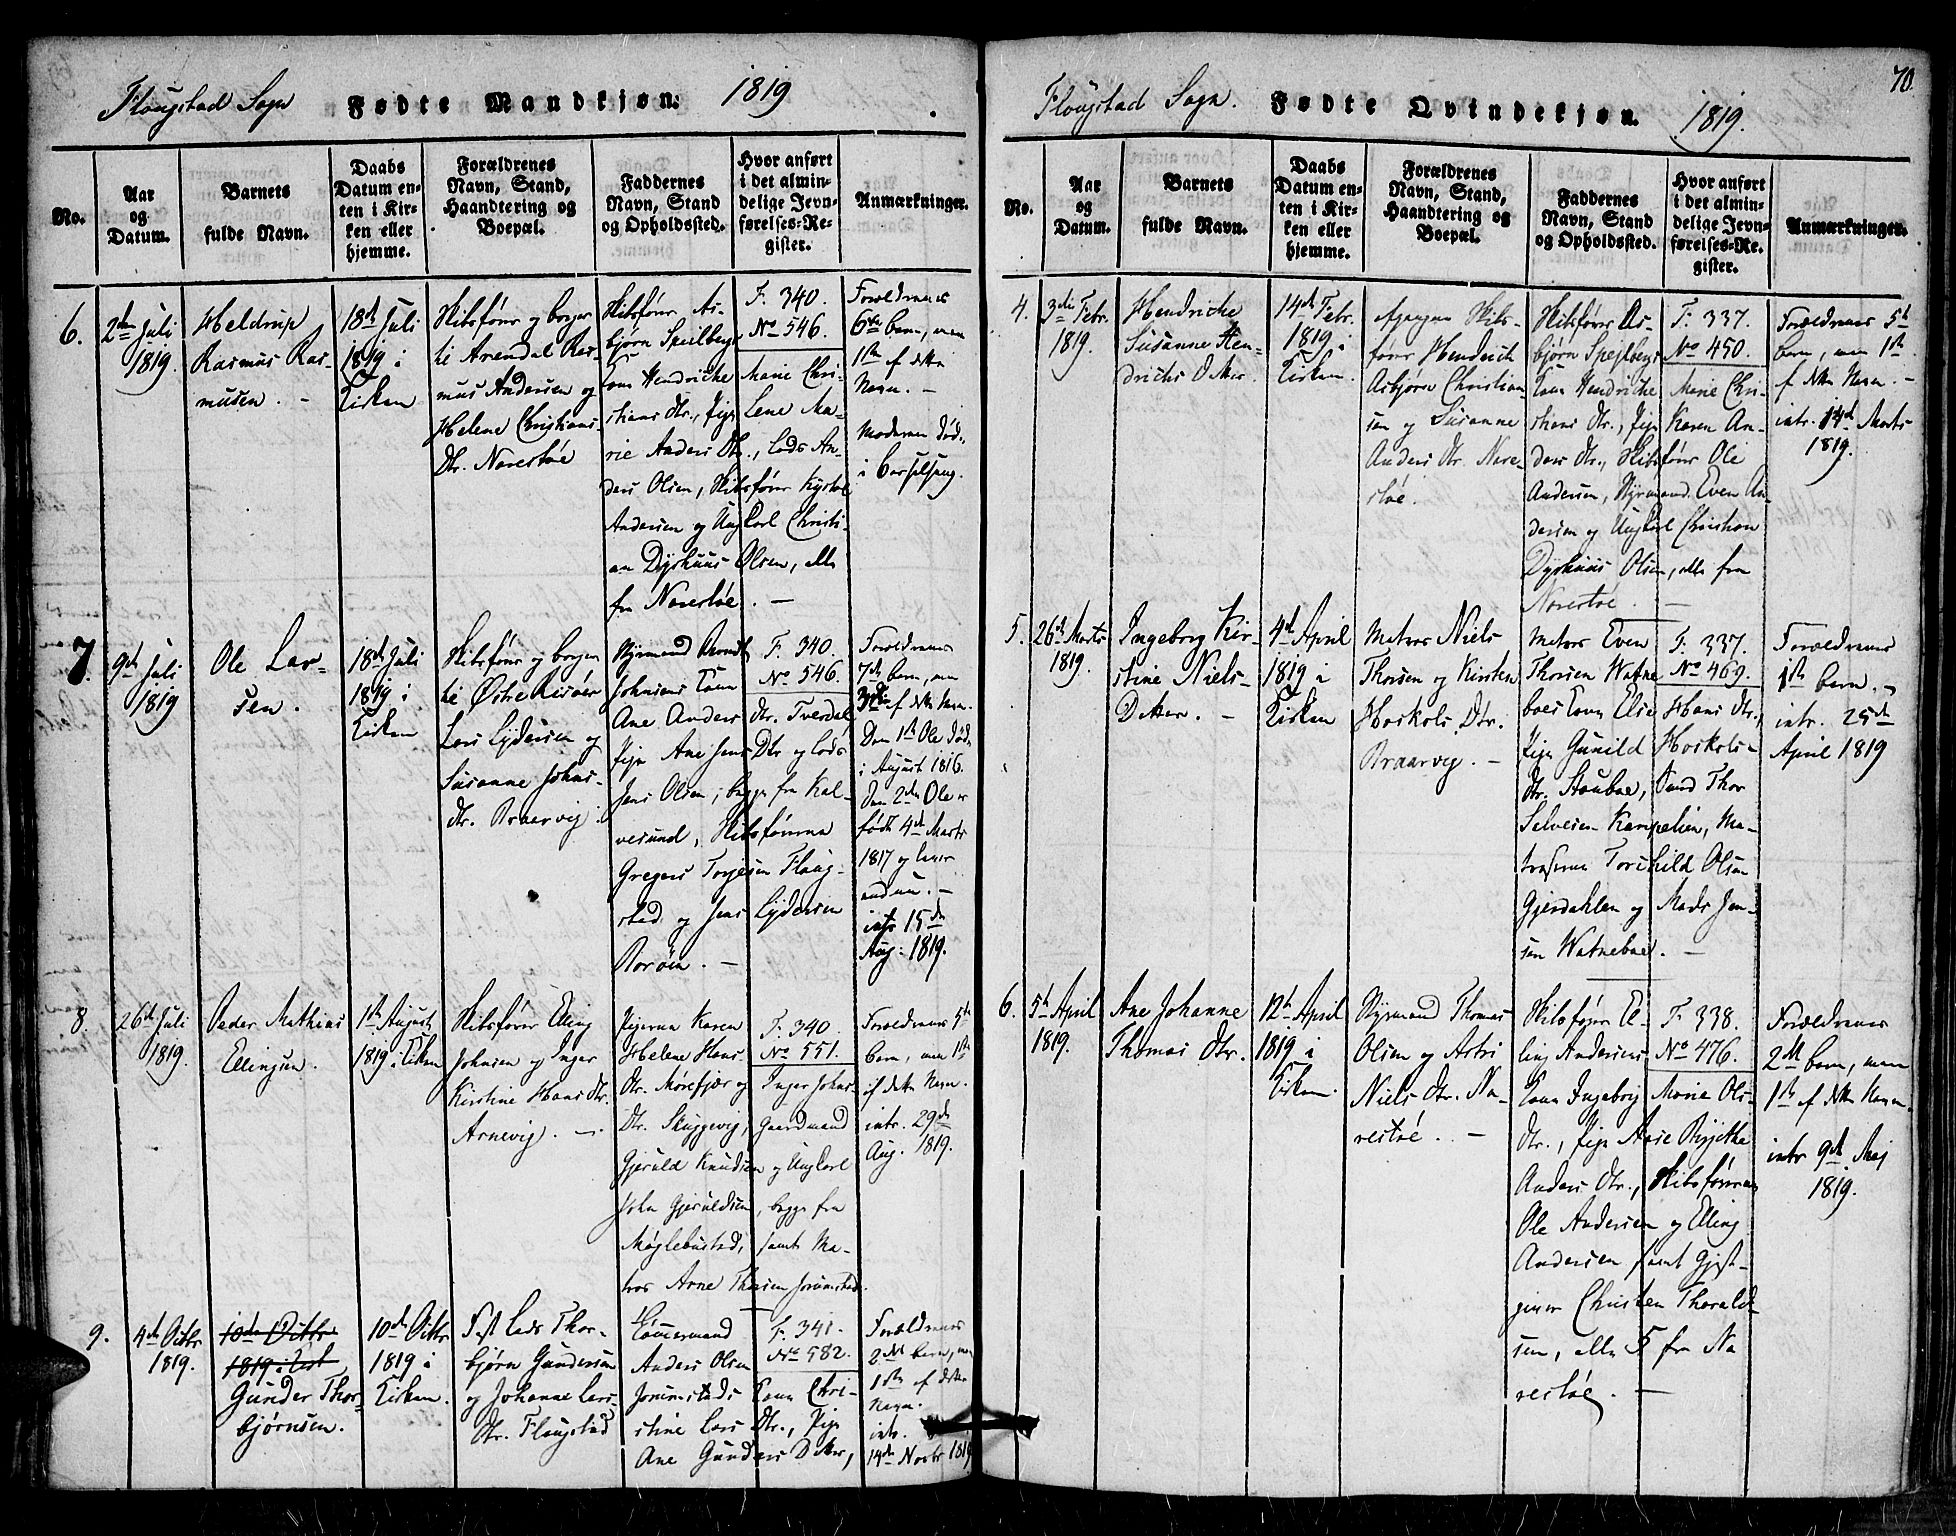 70.
Flougstad Sogn Fødte Mandkjøn. 1819
No.
Aar
og
Datum.
Barnets
fulde Navn.
Daabs
Datum en-
ten i Kir-
ken eller
hjemme.
Forældrenes
Navn, Stand,
Haandtering og
Boepæl.
Faddernes
Navn, Stand
og Opholdssted.
Hvor anført
i det almin-
delige Jevn-
førelses-Re-
gister.
Anmærkninger.
6.
2den Juli
1819.
Heldrup
Rasmus Ras-
musen. -
18d Juli
1819 i
Kirken
Skibsfører og borger
til Arendal Ras-
mus Andersen og
Helene Christians-
Dtr. Narestøe
Skibsfører As-
bjørn Speilbergs
Kone Hendriche
Christians Dtr., Pige Lene Ma-
rie Anders Dtr., Lods An-
ders Olsen, Skibsfører
Andersen og Ungkarl Christi-
an Dyshuus Olsen, alle
fra Narestøe. -
F. 340.
No 546.
Forældrenes
6te barn, men
1ste af dette
Navn. -
Moderen død
i barselseng.
7.
9de Juli
1819
Ole Lar-
sen.
18d Juli
1819 i
Kirken
Skibsfører og borger
til Østre Risøer
Lars Lydersen og
Susanne Johns-
dtr. Braarvig.
Styrmand
Johnsens Kone
Ane Anders dtr. Tverdal
Pige Ane Jens Dtr og Lods
Jens Olsen, begge fra Kal-
vesund, Skibsførerne
Gregers Torjesen Floug-
stad og Jens Lydersen
Borøen. -
F. 340.
No 546.
Forældrenes
7de barn, men
3die af dette Navn.
Den 1ste Ole død
i August 1816.
Den 2den Ole er
født 4de Marts
1817 og lever
endnu. -
intr 15de
Aug: 1819.
8.
26d Juli
1819.
Peder Mathias
Ellingsen.
1ste August
1819 i Kirken
Skibsfører Elling
Johnsen og Inger
Kirstine Hans Dtr.
Arnevig. -
Pigerne Karen
Helene Hans
Dtr. Mørefjær og Inger Johns-
Dtr. Skuggevig, Gaardmand
Gjeruld Knudsen og Ungkarl
John Gjeruldsen, begge fra
Møglebustad, samt Ma-
tros Arne Thorsen Jorunstad.
F. 340.
No 551.
Forældrenes 5te
barn, men 1ste
af dette Navn.
intr. 29de
Aug. 1819.
9.
4de Octbr
1819.
10de Octbr
1819 i
Gunder Thor-
bjørnsen.
10de Octbr
1819 i
Kirken
Fast Lods Thor-
bjørn Gundersen
og Johanne Lars-
Dtr. Flougstad
Tømmermand
Anders Olsen
Jorunstads Kone Chri-
stine Lars Dtr., Pige
Ane Gunders Datter,
F. 341.
No 582.
Forældrenes
2det barn, men
1ste af dette
Navn.
intr.
14de Novbr 1819
Flougstad Sogn. Fødte Qvindekjøn. 1819.
No.
Aar
og
Datum.
Barnets
fulde Navn.
Daabs
Datum en-
ten i Kir-
ken eller
hjemme.
Forældrenes
Navn, Stand,
Haandtering og
Boepæl.
Faddernes
Navn, Stand
og Opholdssted.
Hvor anført
i det almin-
delige Jevn-
førelses-Re-
gister.
Anmærkninger.
4.
3die Febr.
1819.
Hendriche
Susanne Hen-
drichs Datter.
14de Febr.
1819 i
Kirken.
Skibs-
fører Hendrich
Asbjørn Christian-
sen og Susanne
Anders Dtr. Nare-
støe.
Skibsfører As-
bjørn Spejlbergs
Kone Hendriche Marie Chri-
stians Dtr., Pige Karen An-
ders Dtr., Skibsfører Ole
Andersen, Styrmand Even An-
dersen og Ungkarl Christian
Dyshuus Olsen, alle fra
Narestøe. -
F. 337.
No 450.
Forældrenes 5te
barn, men 1ste
af dette Navn. -
intr. 14de Marts
1819.
5.
26de Marts
1819.
Ingeborg Kir-
stine Niels-
Datter. -
4de April
1819 i
Kirken
Matros Niels
Thorsen og Kirsten
Hoskols Dtr.
Braarvig. -
Matros Even
Thorsen Watne-
boes Kone Else Hans Dtr.
Pige Gunild Hoskols-
Dtr. Stoubøe, Thor
Salvesen Kempelien, Ma-
troserne Torchild Olsen
Gjerdahlen og Mads Jen-
sen Watneboe. -
F. 337.
No 469.
Forældrenes
1ste barn. -
intr. 25de
April 1819
6.
5te April
1819.
Ane Johanne
Thomas Dtr.
12te April
1819 i
Kirken.
Styrmand Thomas
Olsen og Astri
Niels Dtr. Na-
restøe. -
Skibsfører El-
ling Andersens
Kone Ingeborg Marie Ols-
dtr., Pige Anne Birgithe
Anders Dtr., Skibsførerne
Ole Andersen og Elling
Andersen samt Gjest-
giver Christen Thorald-
sen, alle 5 fra Na-
restøe. -
F. 338.
No 476.
Forældrenes
2det barn, men
1ste af dette Navn.
intr. 9de Maj
1819.